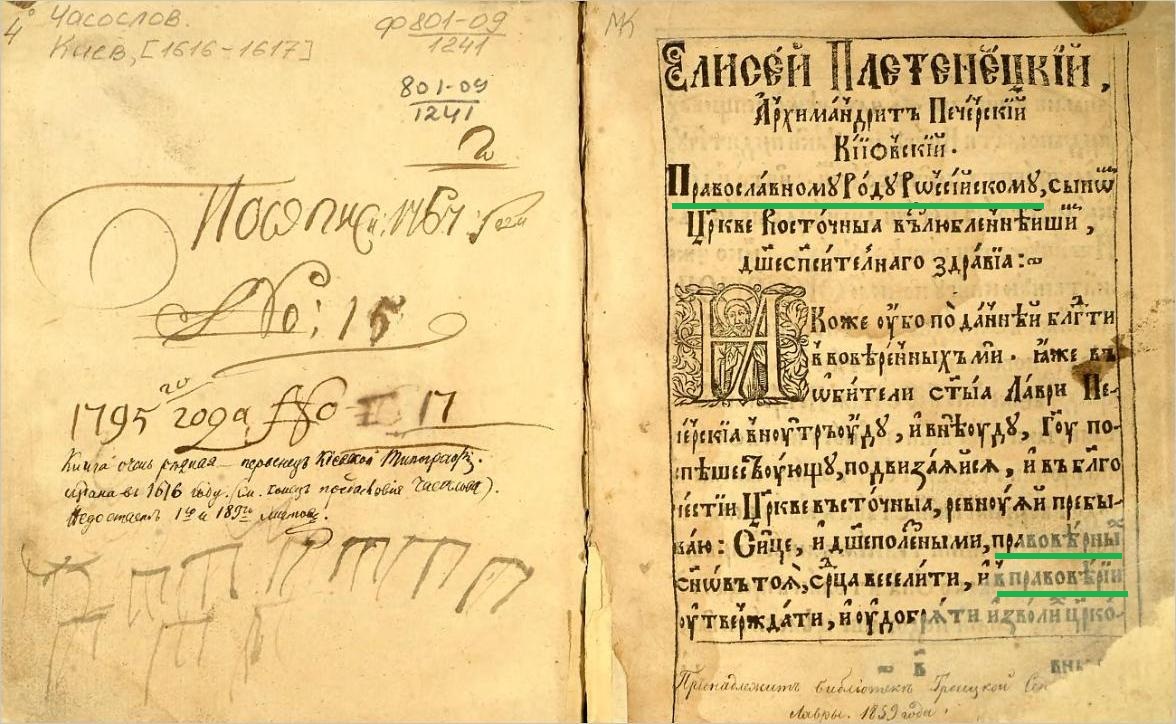 4°
Часослов.
Киев, [1616-1617]
Ф 801-09
1241
801-09
1241
No: 15
1795 го года No 17
Книга очень редкая – первенецъ Кіевской Типографіи.
1616 году. (См. конецъ послесловія Часослова).
Недостаетъ 1го и 189го листовъ.
МК
Єлисе́й Плетене́цкїй,
А҆рхима́ндритъ Пече́рскїй
Кїйѡвскїй.
Правосла́вномУ Ро́дУ Рѡссі́йскомУ, сынѡⷨ
Цр҃кве Восто́чныа въⷥлю́бленнѣйшиⷨ,
дш҃еспⷭ҇ителнаго здра́вїа:~
ꙖА
Коже ᲂу҆бо по да́ннѣй блгⷣти
и҆ ввовѣре́нныхъ мѝ. ꙗ҆́же въ
ѡ҆би́тели ст҃ы́а Ла́ври Пе-
че́рскїа вноутръᲂу́дУ, и҆ внѣᲂу́дУ, Гоⷭ҇У по-
спѣшесⷮвоующУ, подвиза́ѧйсѧ, и҆ въ бл҃го
че́стїи Цр҃кве въсто́чныа, ревноуѧ́й пребы-
ва́ю: Си́це, и҆ дш҃еполе́зными, правовѣ́рныⷯ
сн҃ѡвъ тоѧ̀, срⷣца весели́ти, и҆ в правовѣ́рїи
ᲂу҆твержда́ти, и҆ ᲂу҆добрѧ́ти и҆зво́лиⷯ цр҃ко-
Принадлежитъ библіотекѣ Троицкой Се
Лавры. 1859 года.